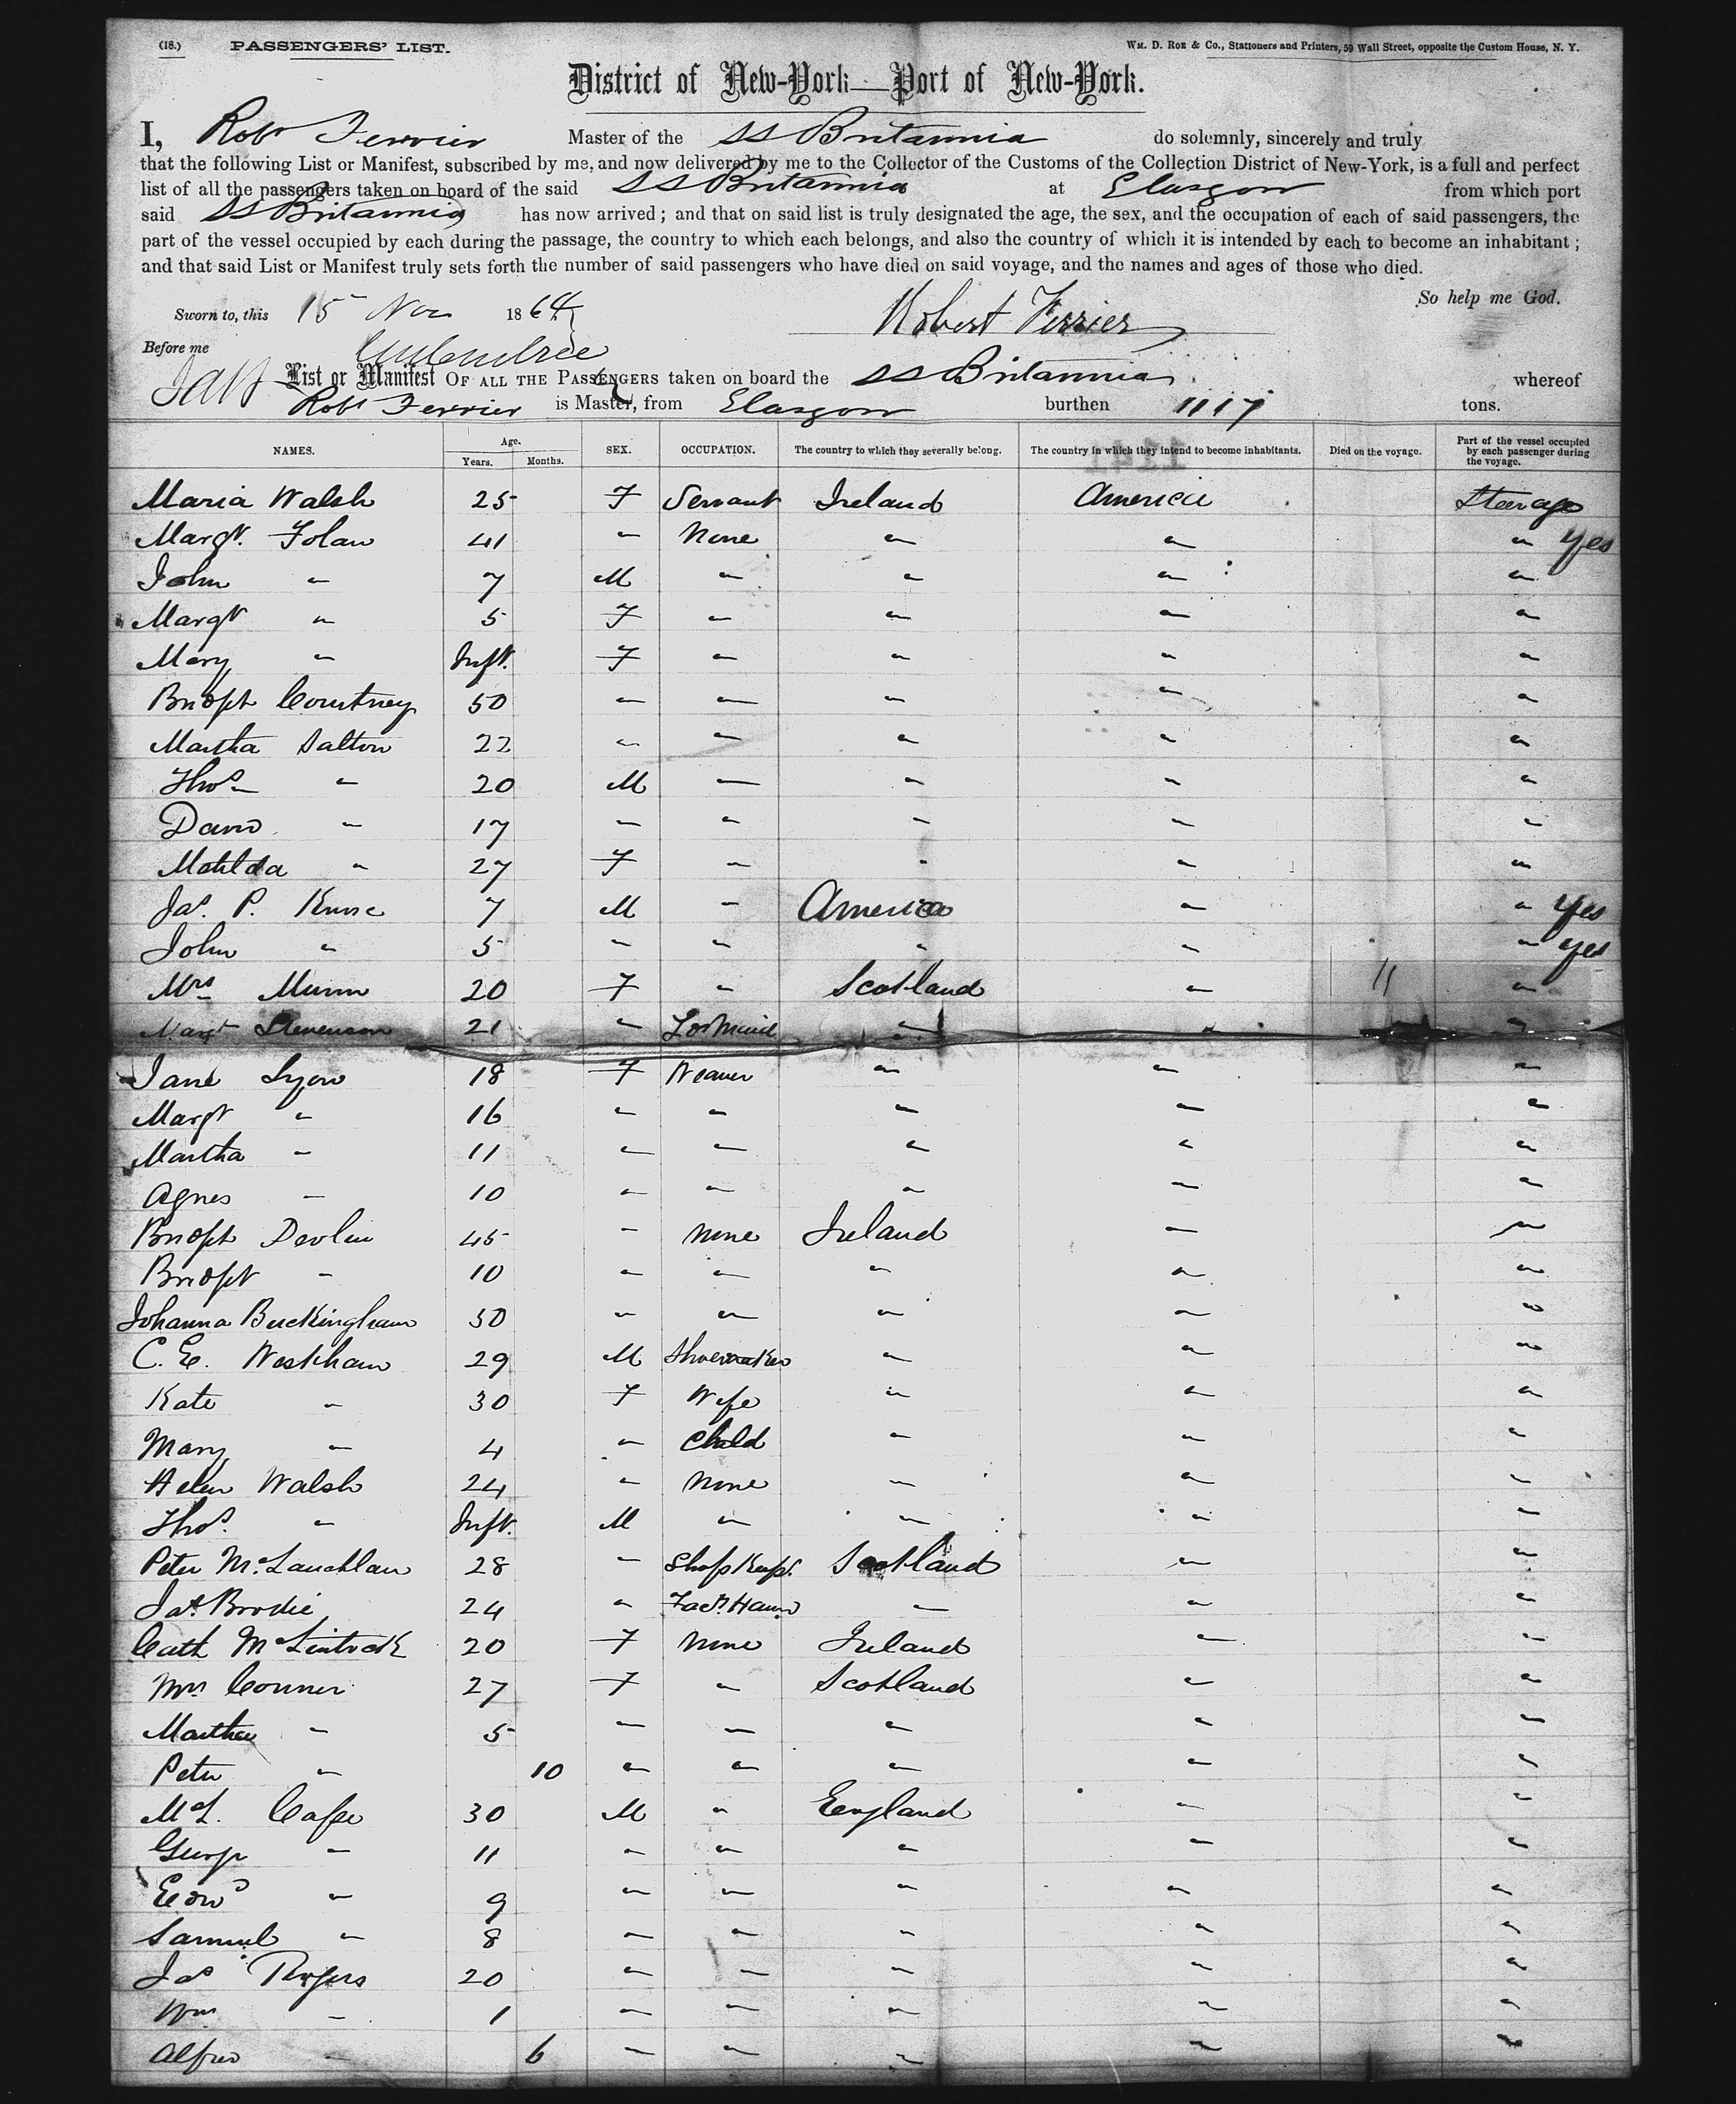 (18.) PASSENGERS' LIST. Wm. D. Roe & Co., Stationers and Printers, 59 Wall Street, opposite the Custom House, N. Y.
District of New-York—Port of New-York.
I, Robt Ferrier Master of the SS Britannia do solemnly, sincerely and truly
that the following List or Manifest, subscribed by me, and now delivered by me to the Collector of the Customs of the Collection District of New-York, is a full and perfect
list of all the passengers taken on board of the said SS Britannia at Glasgow from which port
said SS Britannia has now arrived; and that on said list is truly designated the age, the sex, and the occupation of each of said passengers, the
part of the vessel occupied by each during the passage, the country to which each belongs, and also the country of which it is intended by each to become an inhabitant;
and that said List or Manifest truly sets forth the number of said passengers who have died on said voyage, and the names and ages of those who died.
So help me God.
Sworn to, this 15 Nov 1864 Robert Ferrier
Before me
List or Manifest OF ALL THE PASSENGERS taken on board the SS Britannia whereof
Robt Ferrier is Master, from Glasgow burthen 1117 tons.
NAMES. Age. Years. Months. SEX. OCCUPATION. The country to which they severally belong. The country in which they intend to become inhabitants. Died on the voyage. Part of the vessel occupied by each passenger during the voyage.
Maria Walsh 25 F Servant Ireland America Steerage
Margt. Folan 41 " None " " " Yes
John " 7 M " " " "
Margt " 5 F " " " "
Mary " Inft. F " " " "
Bridgt Courtney 50 " " " " "
Martha Salton 22 " " " " "
Thos " 20 M " " " "
David " 17 " " " " "
Matilda " 27 F " " " "
Jas. P. 7 M " America " " Yes
John " 5 " " " " " Yes
Mrs Munn 20 F " Scotland " "
Margt Stevenson 21 " " " "
Jane Lyon 18 F Weaver " " "
Margt " 16 " " " " "
Martha " 11 " " " " "
Agnes " 10 " " " " "
Bridgt Devlin 45 " None Ireland " "
Bridgt " 10 " " " " "
Johanna Buckingham 30 " " " " "
C. E. Westham 29 M Shoemaker " " "
Kate " 30 F Wife " " "
Mary " 4 " Child " " "
Helen Walsh 24 " None " " "
Thos. " Inft. M " " " "
Peter McLauchlan 28 " Shop Keepr. Scotland " "
Jas. Brodie 24 " Facty. Hand " " "
Cath McLintock 20 F None Ireland " "
Mrs Conner 27 F " Scotland " "
Matthew " 5 " " " " "
Peter " 10 " " " " "
30 M " England " "
George " 11 " " " " "
Edwd " 9 " " " " "
Samuel " 8 " " " " "
Jas Rogers 20 " " " " "
Wm " 1 " " " " "
Alfred " 6 " " " " "